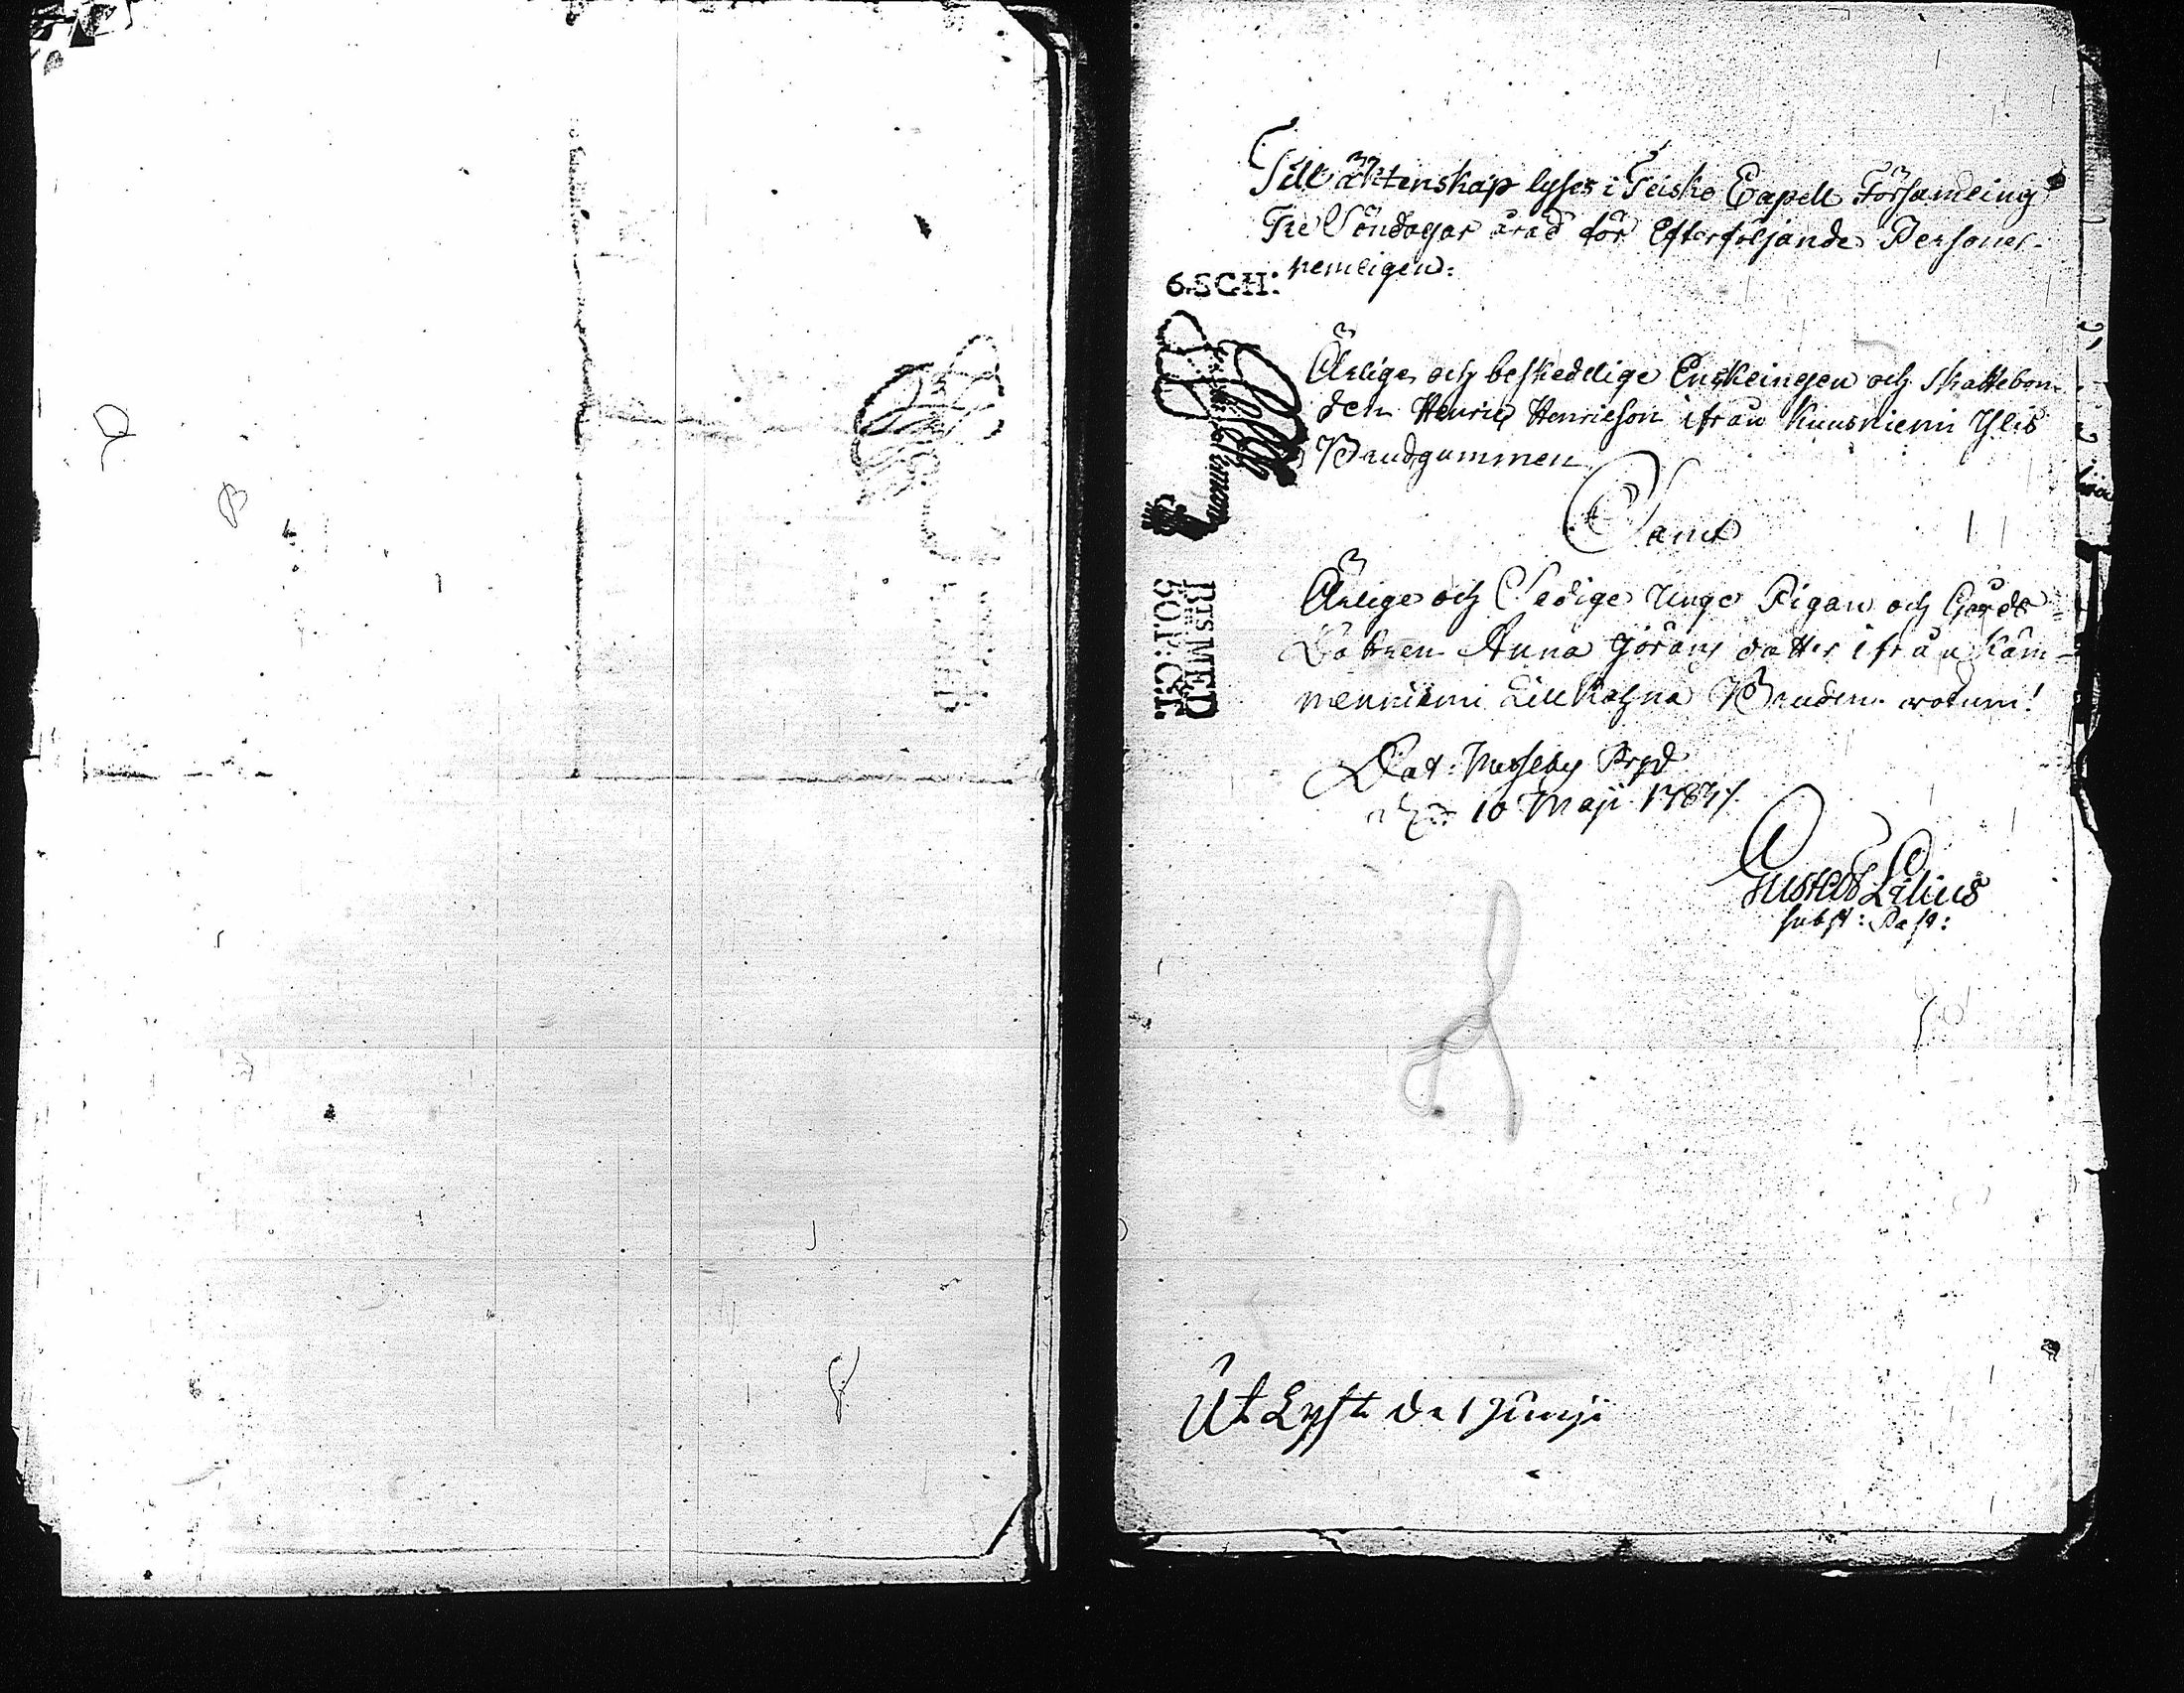 Till äktenskap lyses i Teisko Capell Församling
Tre Söndagar å rad för Efterföljande Personer
nemligen:
6.SCH:
Ärlige och beskedelige Enklingen och Skattebon-
den Henric Henricson ifrån Kuusniemi Ylis
Brudgummen
Samt
Ärlige och Sedige Unge Pigan och Gårds
Dottren Anna Görans dotter ifrån Käm-
menniemi Lill Kahna Bruden wotum!
BTS MED
50 P: CT.
Dat: Messuby Prgd
d. 10 Maji 1783
Gustav Lilius
subst: Past:
Ut Lyst d. 1 Junji